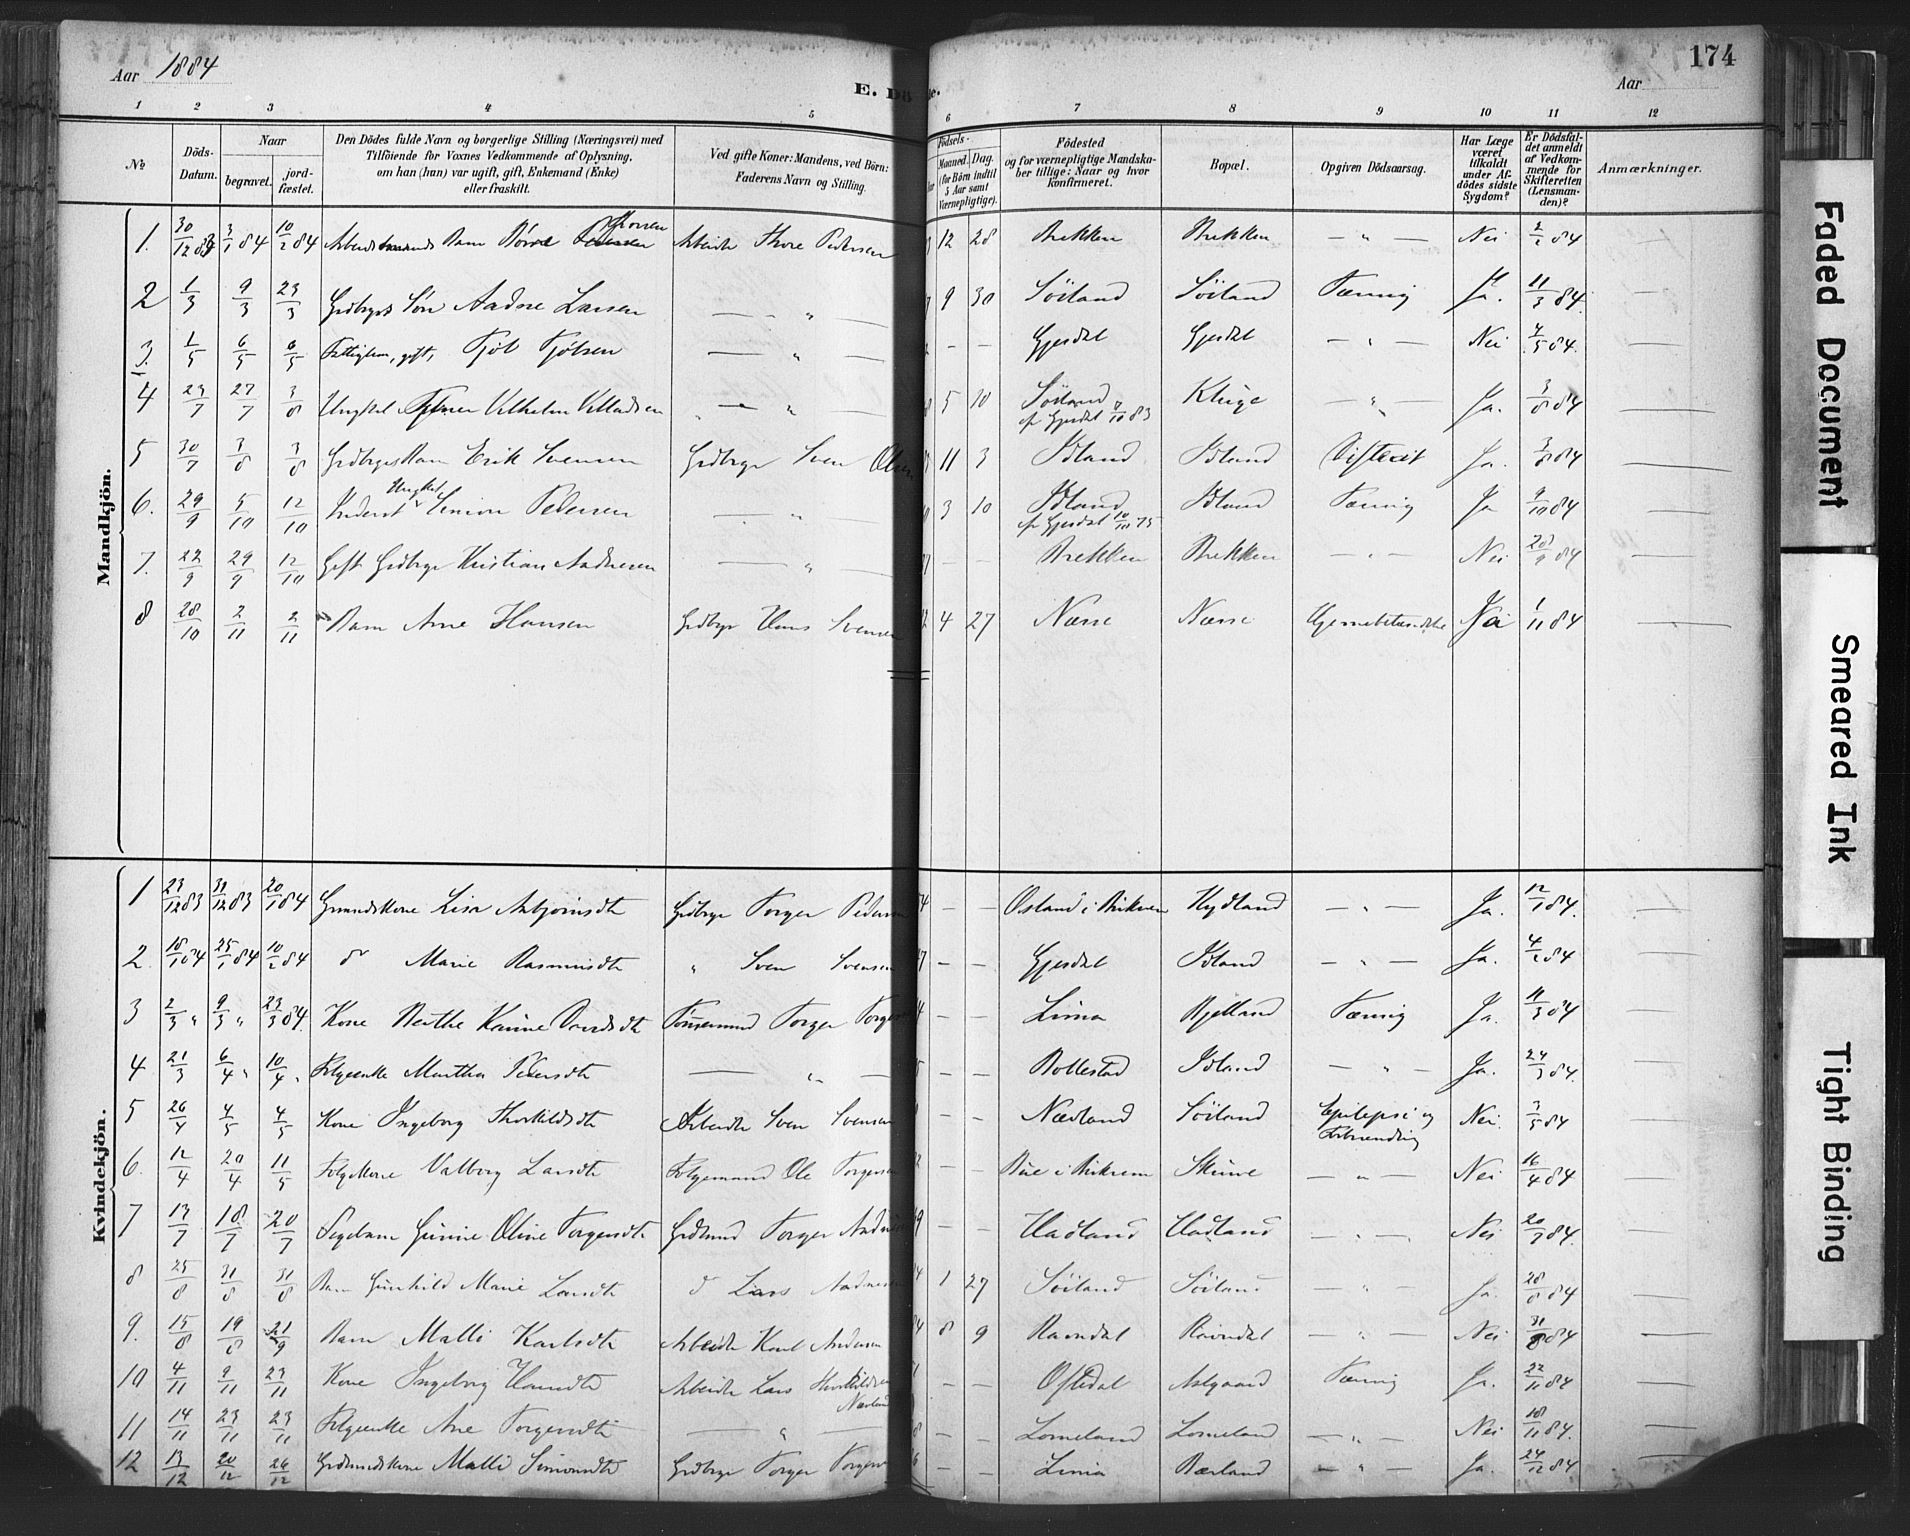 Aar 1884
E. Dö
de.
174
Aar
1 2 3 4 5 6 7 8 9 10 11 12
№
Döds-Datum.
Naar
begravet.
jord-fæstet.
Den Dödes fulde Navn og borgerlige Stilling (Næringsvei) med
Tilföiende for Voxnes Vedkommende af Oplysning,
om han (hun) var ugift, gift, Enkemand (Enke)
eller fraskilt.
Ved gifte Koner: Mandens, ved Börn:
Faderens Navn og Stilling.
Födsels-
Maaned. Dag.
(for Börn indtil
5 Aar samt
Værnepligtige).
Födested
og for værnepligtige Mandska-
ber tillige: Naar og hvor
konfirmeret.
Bopæl.
Opgiven Dödsaarsag.
Har Læge
været
tilkaldt
under Af-
dödes sidste
Sygdom?
Er Dödsfal-
det anmeldt
af Vedkom-
mende for
Skifteretten
(Lensman-
den)?
Anmærkninger.
Mandkjön.
1. 30/12 83 3/1 84 10/2 84 Barn Arbeider Thore Pedersen 12 28 Brekken Brekken — " — Nei 2/2 84
2 1/3 9/3 23/3 Grdbrgrs Søn Aadne Larsen — " — 9 30 Søiland Søiland Tæring Ja. 11/3 84.
3. 1/5 6/5 6/5 gift, Tjøl Tjølsen — " — - - Gjesdal Gjesdal — " — Nei 4/5 84.
4 23/7 27/7 3/8 Ungkal Vilhelm — " — 5 10 Søiland Kluge — " — Ja. 3/8 84
Gjesdal 7/10 83
5 30/7 3/8 3/8 Grdbrgrs Barn Erik Svensen Grdbrgr Sven Olsen 11 3 Idland Idland Difterit Ja. 3/8 84
6. 29/9 5/10 12/10 Inderst Ungkal Simon Pedersen — " — 3 10 Idland Idland Tæring Ja 9/10 84
Gjesdal 10/10 75
7. 22/9 29/9 12/10 Gift Grdbrgr Kristian Aadnesen — " — - - Brekken Brekken — " — Nei 28/9 84
8 28/10 2/11 2/11 Barn Arne Hansen Grdbrgr Hans Svensen 4 27 Næsse Næsse Hjernebetændelse 1/11 84
Kvindekjön.
1 23/12 83 31/12 83 20/1 84 Gmandskone Lisa Asbjørnsdtr Grdbrgr Torger Pedersen - - Osland i Birkrem Hydland — " — Ja. 12/1 84.
2. 18/1 84 25/1 84 10/2 84 do Marie Rasmusdtr " Sven Svensen - - Gjesdal Idland — " — Ja. 4/2 84
3 2/3 " 9/3 " 23/3 84. Kone Berthe Karine Torger - - Lima Bjelland Tæring Ja. 11/3 84
4 21/3 6/4 " 10/4 " Folgeenke Martha Pedersdtr — " — - - Bollestad Idland — " — Ja. 24/3 84.
5 26/4 4/5 4/5 Kone Ingeborg Thorkildsdtr Arbeider Sven Svensen - - Nædland Søiland Epilepsi og Nei. 3/5 84
Forbrænding
6. 12/4 20/4 11/5 Folgekone Valborg Larsdtr Folgemand Ole Torgersen - - Bue i Birkrem Skurve — " — Nei 16/4 84
7 13/7 18/7 20/7 Pigebarn Gurine Oline Torgersdtr Grdmd Torger - - Hadland Hadland — " — Nei 20/7 84.
8 25/8 31/8 31/8 Barn Gunhild Marie Larsdtr d Lars 1 27 Søiland Søiland — " — Ja. 28/8 84
9. 15/8 19/8 21/9 Barn Malli Karlsdtr Arbeider Karl Andersen 8 9 Ravndal Ravndal — " — Nei 31/8 84
10 4/11 9/11 23/11 Kone Ingeborg Hansdtr Arbeider Lars Thorkildsen - - Oftedal Aalgaard Tæring Ja. 22/11 84
11 14/11 23/11 23/11 Folgeenke Ane Torgersdtr — " — - - Lomeland Lomeland — " — Nei 18/11 84.
12 13/12 20/12 26/12 Grdmandskone Malli Simonsdtr Grdbrgr Torger - - Lima Bærland — " — Ja. 24/12 84
Faded Document
Smeared Ink
Tight Binding